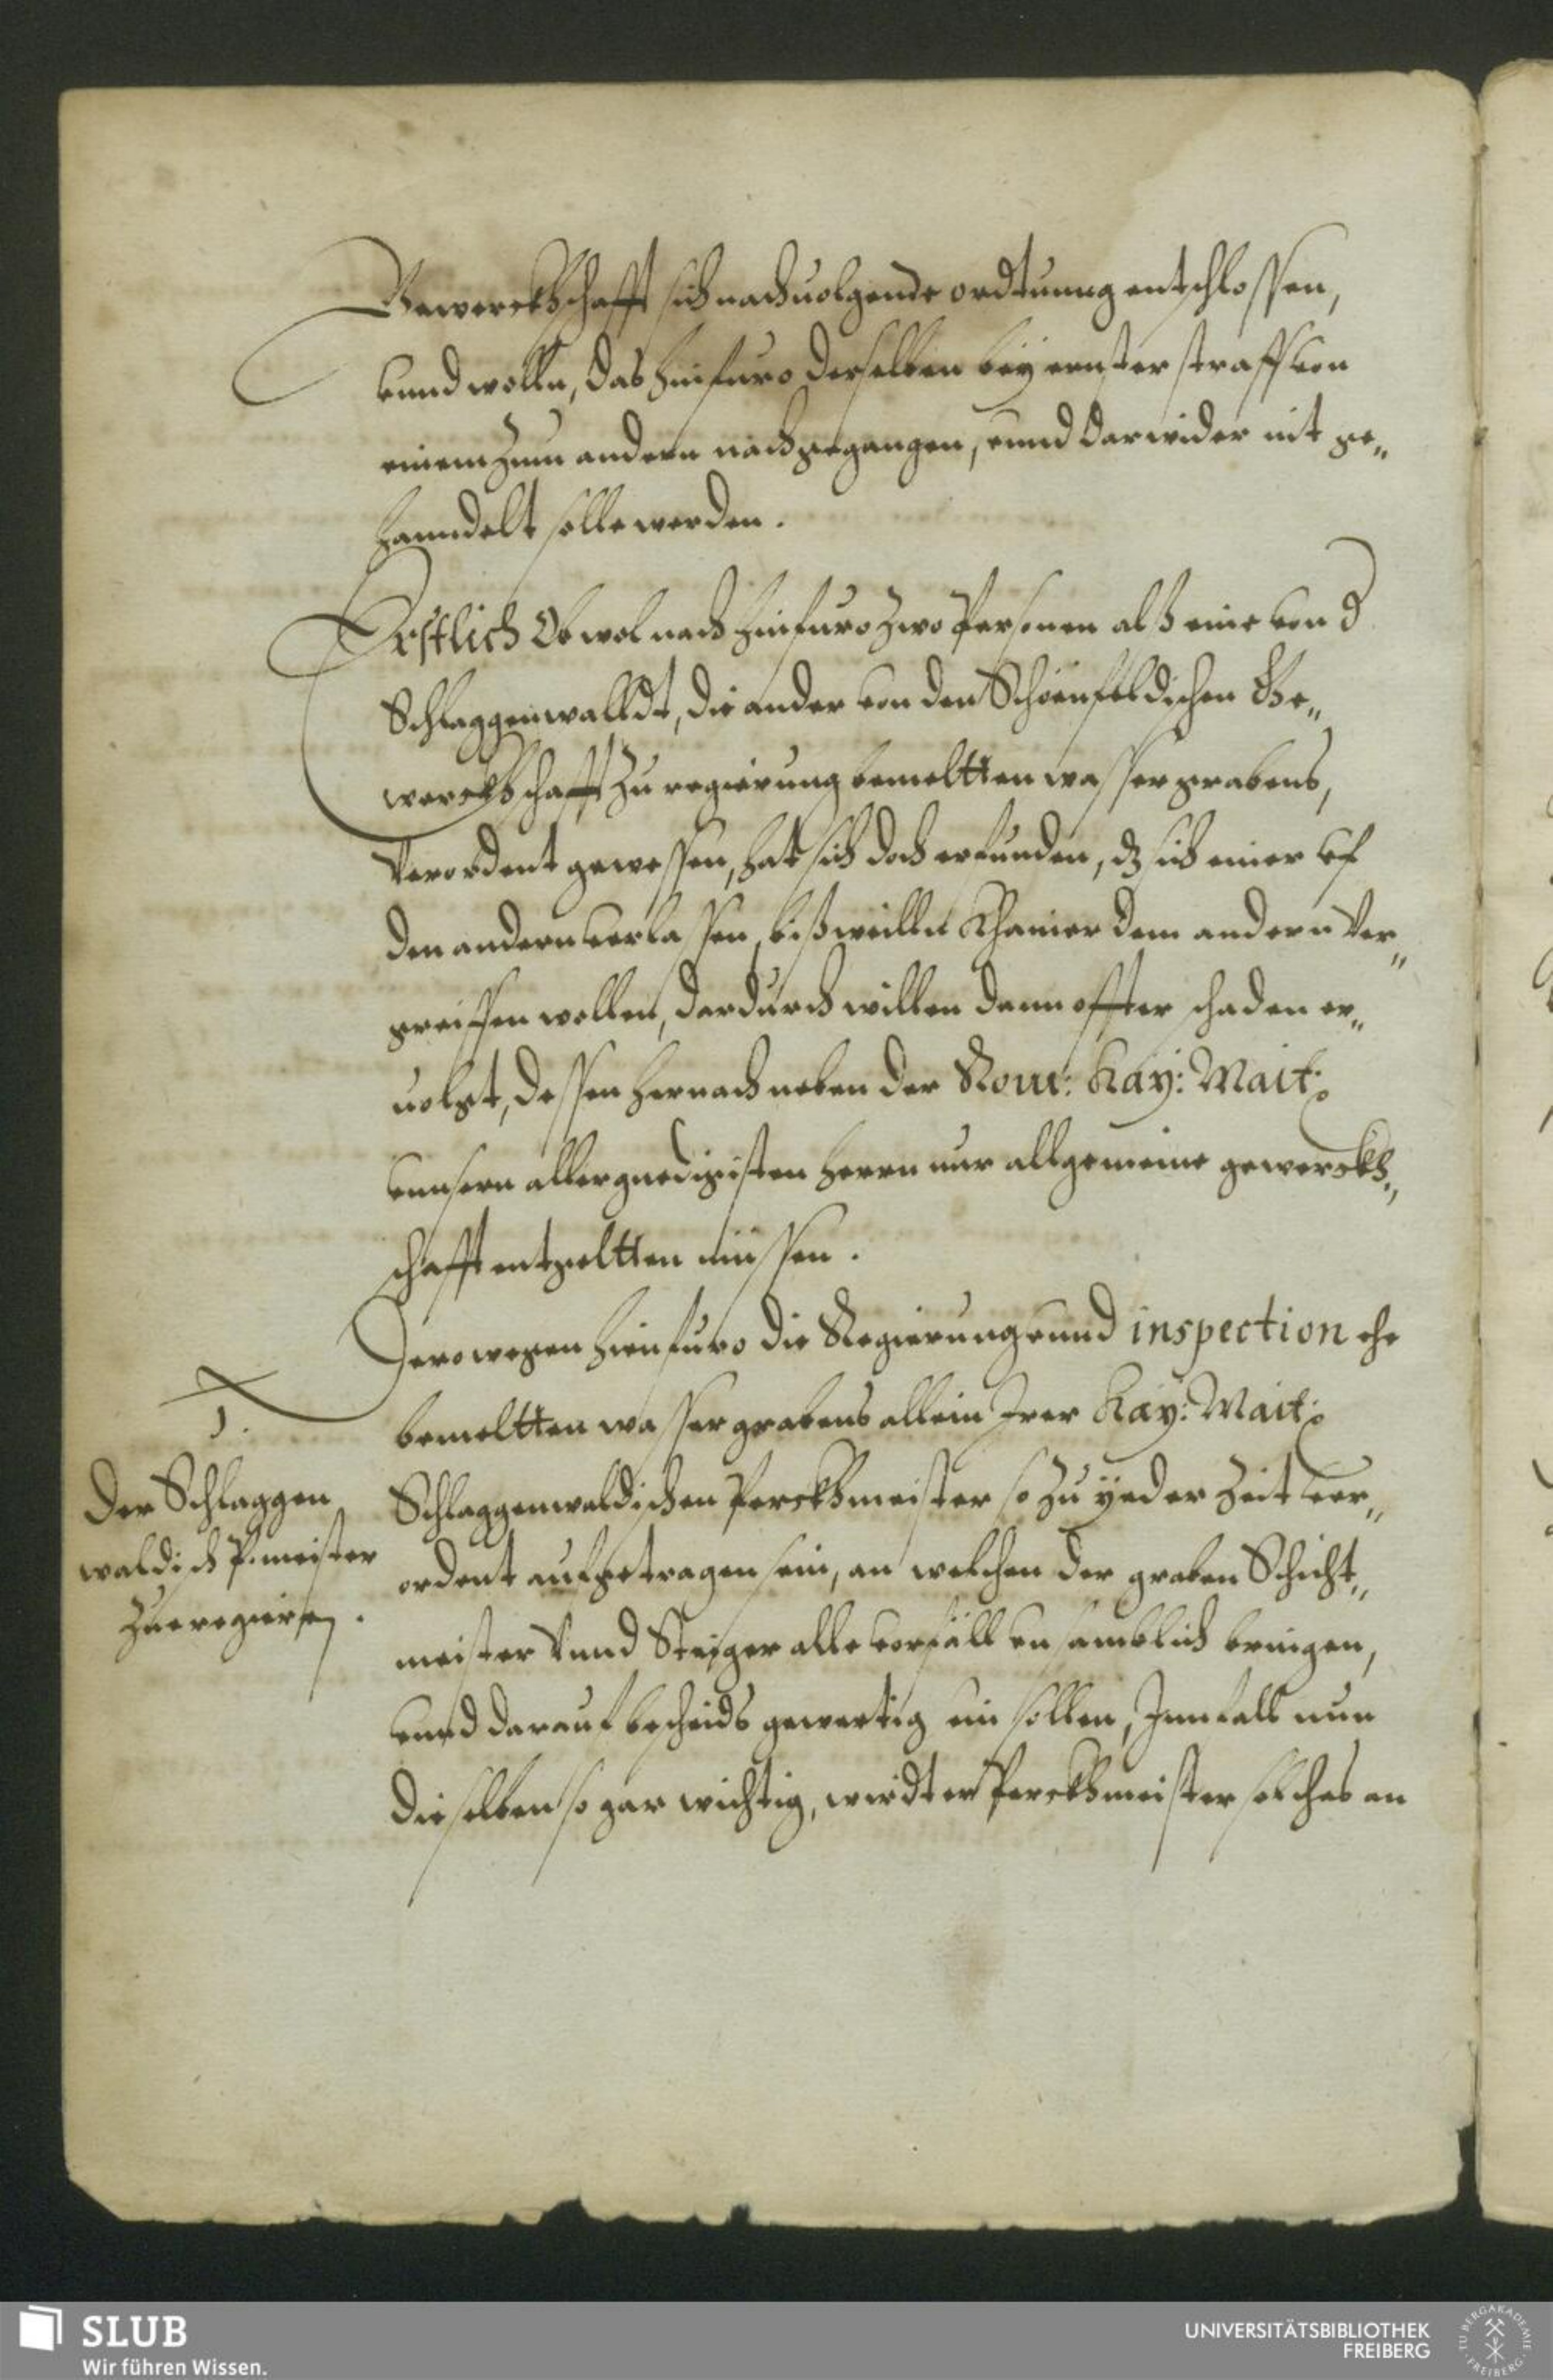 Gewerckhschafft sich nachuolgende ordtnung entschlossen,
vnnd wolln, das hinfuro derselben bey ernster straff von
einem zum andern nachgegangen, vnnd darwider nit ge„
hanndelt solle werden.
Erstlich Ob wol nach hinfuro zwo Personen alß eine von d
Schlaggenwalldt, die ander von den Schönfeldischen Ge„
werckhschafft zu regierung bemeltten wassergrabens,
Verordent gewessen, hat sich doch erfunden, dz sich einer vf
den andern verlassen, bißweilln khainer dem andern Ver„
greiffen wollen, dardurch willen dann offter schaden er„
uolgt, dessen hernach neben der Röm: Kay: Mait:
vnnsern allergnedigisten herrn allgemeine gewerckh„
schafft entgeltten müssen.
Derowegen hienfuro die Regierung vnnd inspection ehe
bemeltten wassergrabens allein Irer Kay: Mait:
Schlaggenwaldischen Perckhmeister so zu yeder Zeit ver„
ordent aufgetragen sein, an welchen der graben Schicht„
meister Vnnd Steiger alle vorfäll en samblich bringen,
vnnd darauf bescheids gewertig sollen, Innfall nun
dieselben so gar wichtig, wirdt er Perckhmeister solches an
1.
Der Schlaggen
waldisch P. meister
zue regiern.
SLUB
Wir führen Wissen.
UNIVERSITÄTSBIBLIOTHEK
FREIBERG
TU BERGAKADEMIE
FREIBERG